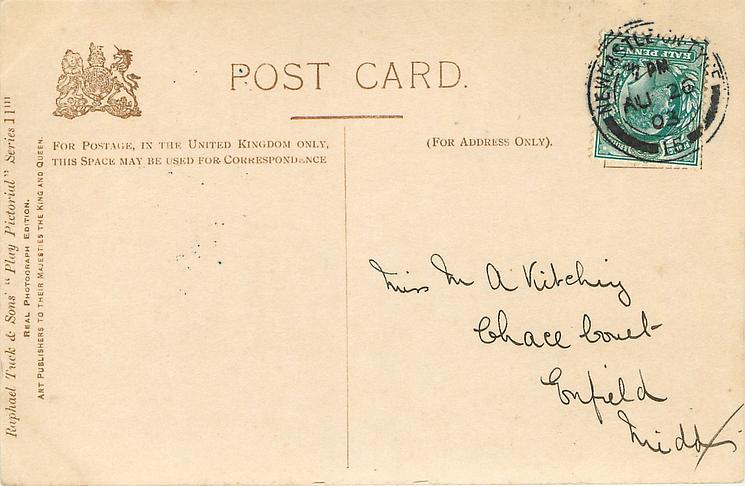 POST CARD.
FOR POSTAGE, IN THE UNITED KINGDOM ONLY,
THIS SPACE MAY BE USED FOR CORRESPONDENCE
(FOR ADDRESS ONLY).
Raphael Tuck & Sons' "Play Pictorial" Series 11III
REAL PHOTOGRAPH EDITION.
ART PUBLISHERS TO THEIR MAJESTIES THE KING AND QUEEN.
HALF PENNY
NEWCASTLE-ON-TYNE
PM
AU 26
03
Miss M A Kitching
Chace Court
Enfield
Middx